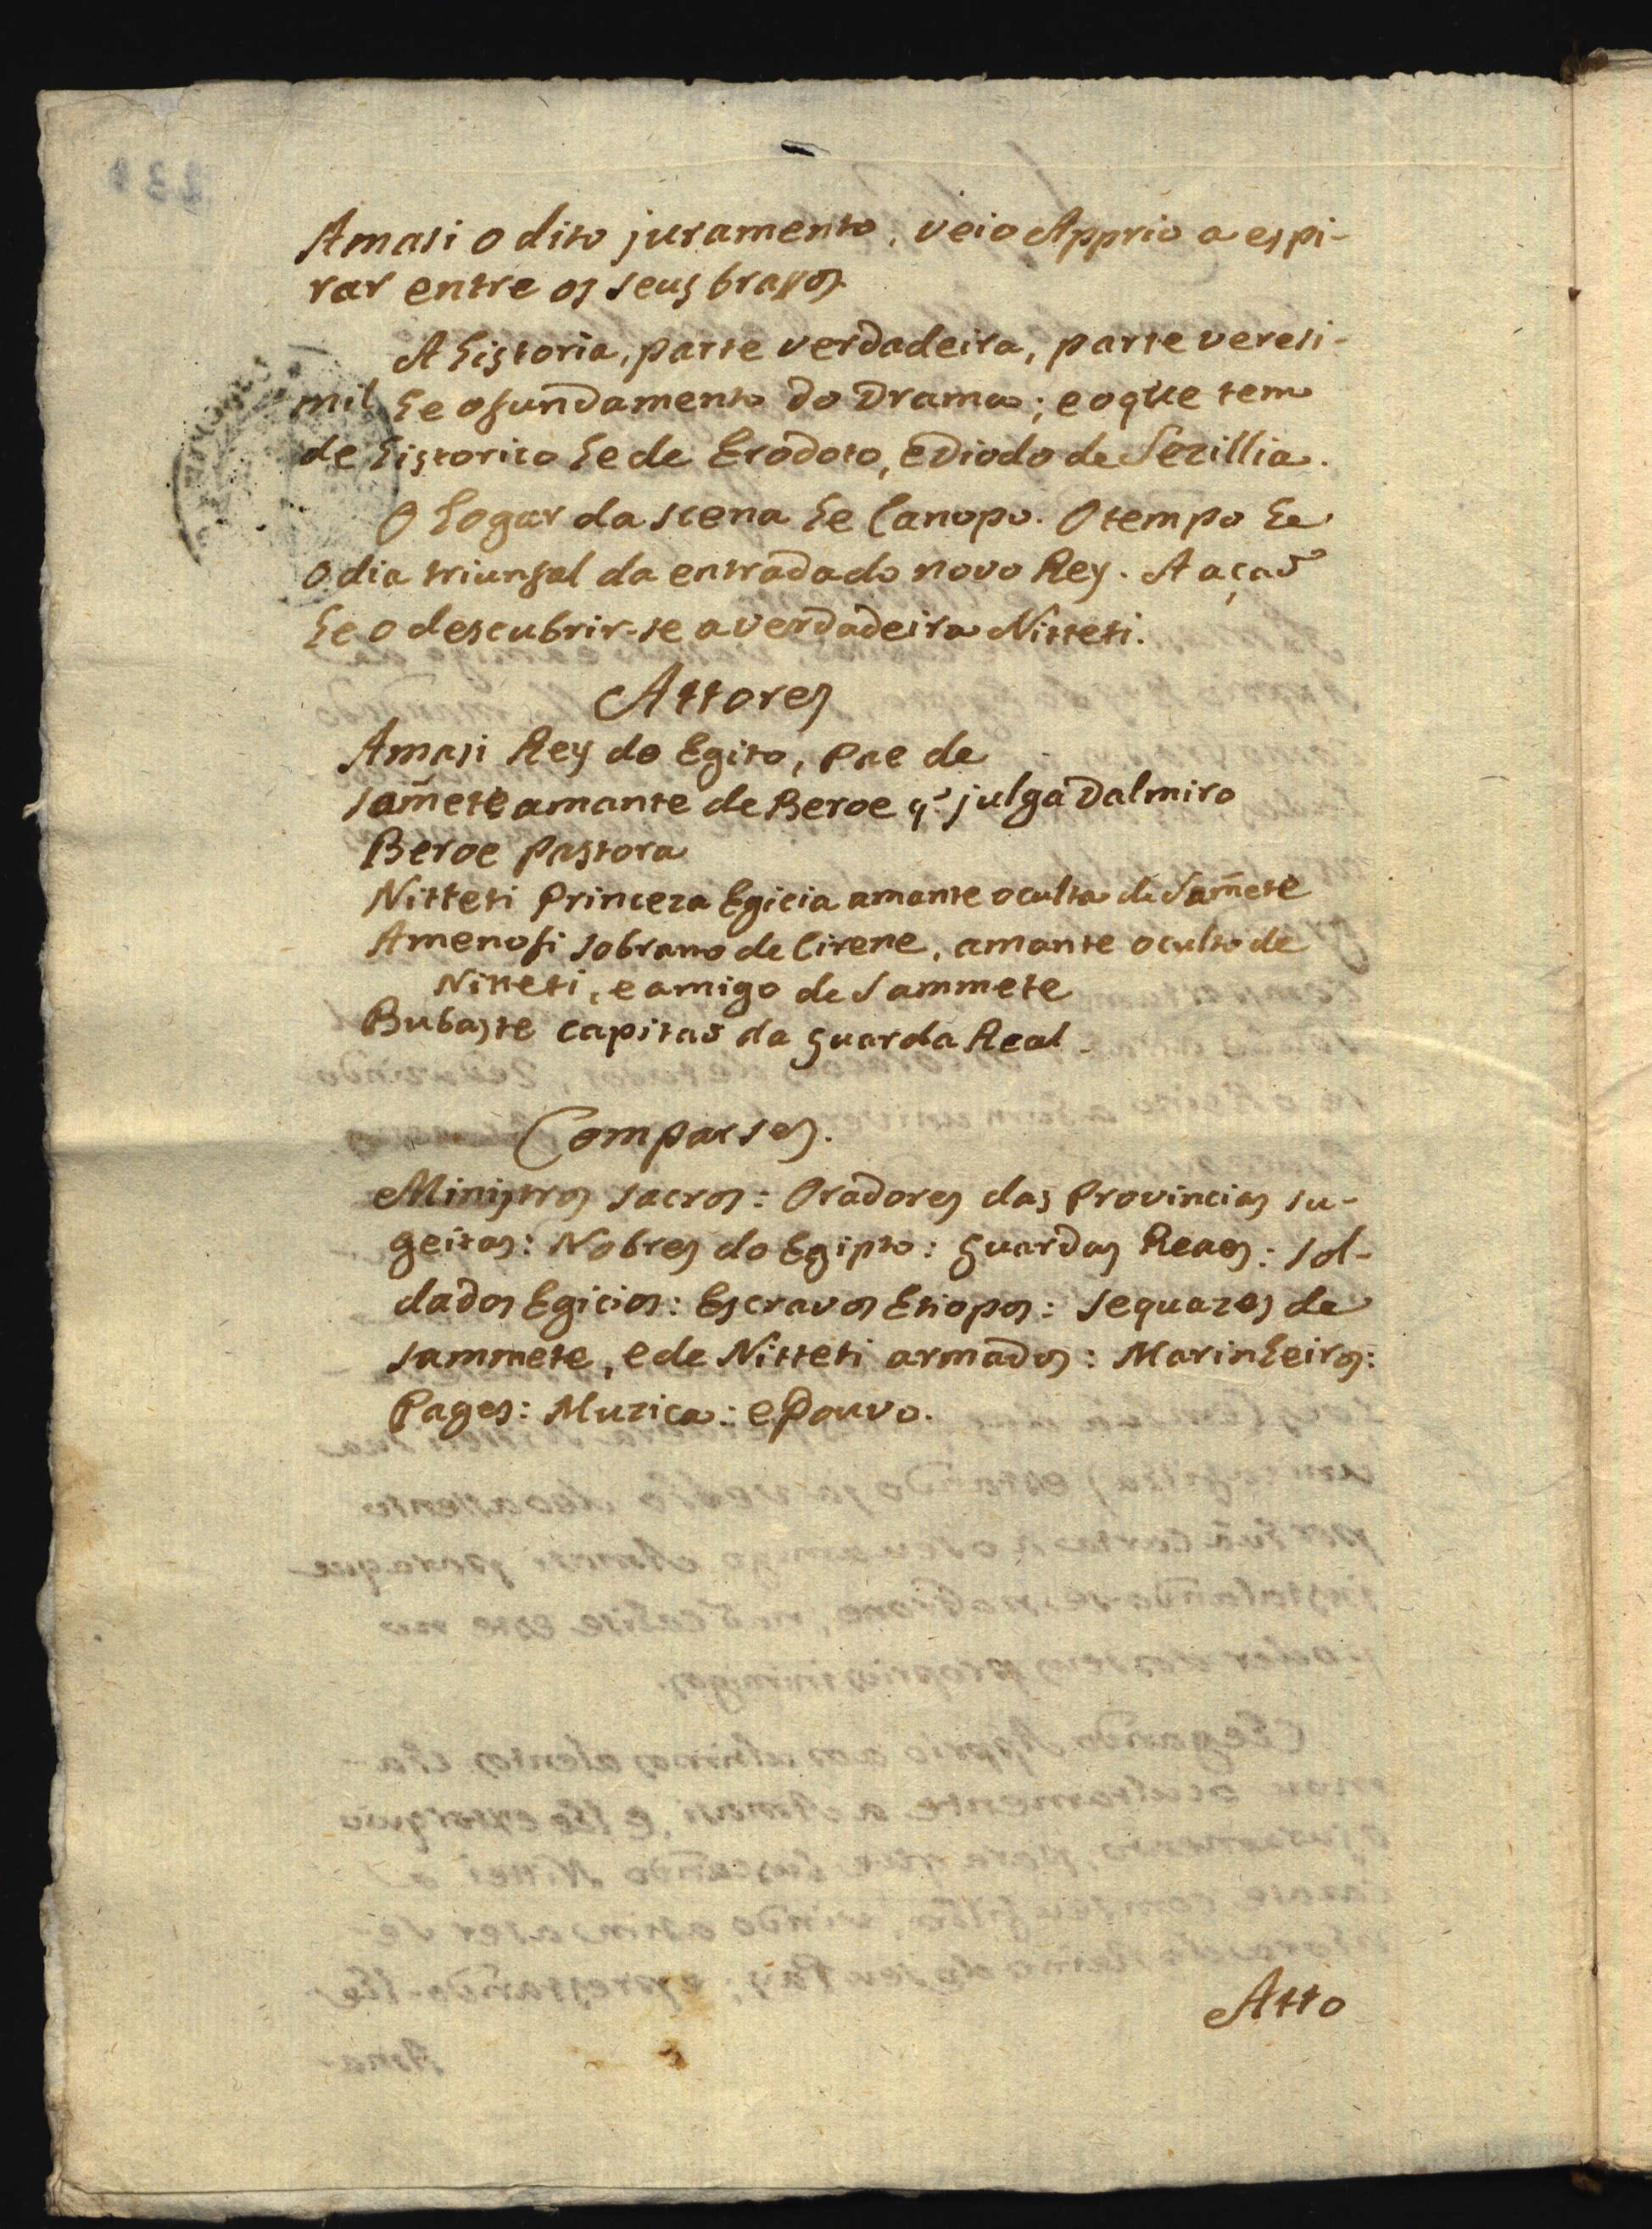 Amasi o dito juramento, veio Apprio a espi-
rar entre os seus brassos.
A historia, parte verdadeira, parte veresi-
mil he o fundamento do Drama; e o que tem
de historico he de Erodoto, e Diodo de Sezillia.
O Logar da scena he Canopo. O tempo he
o dia triunfal da entrada do novo Rey. A açaõ
he o descubrir-se a verdadeira Nitteti.
Attores
Amasi Rey do Egito, Pae de
Sam̃ete amante de Beroe q̃ julga Dalmiro
Beroe Pastora
Nitteti Princeza Egicia amante oculta de Sam̃ete
Amenofi sobrano de Cirene, amante oculto de
Nitteti, e amigo de Sammete
Bubaste capitaõ da guarda Real.
Comparses.
Ministros sacros: Oradores das Provincias su-
geitas: Nobres do Egipto: guardas Reaes: sol-
dados Egicios: Escravos Etiopos: sequazes de
Sammete, e de Nitteti armados: Marinheiros:
Pages: Muzica: e Pouvo.
Atto